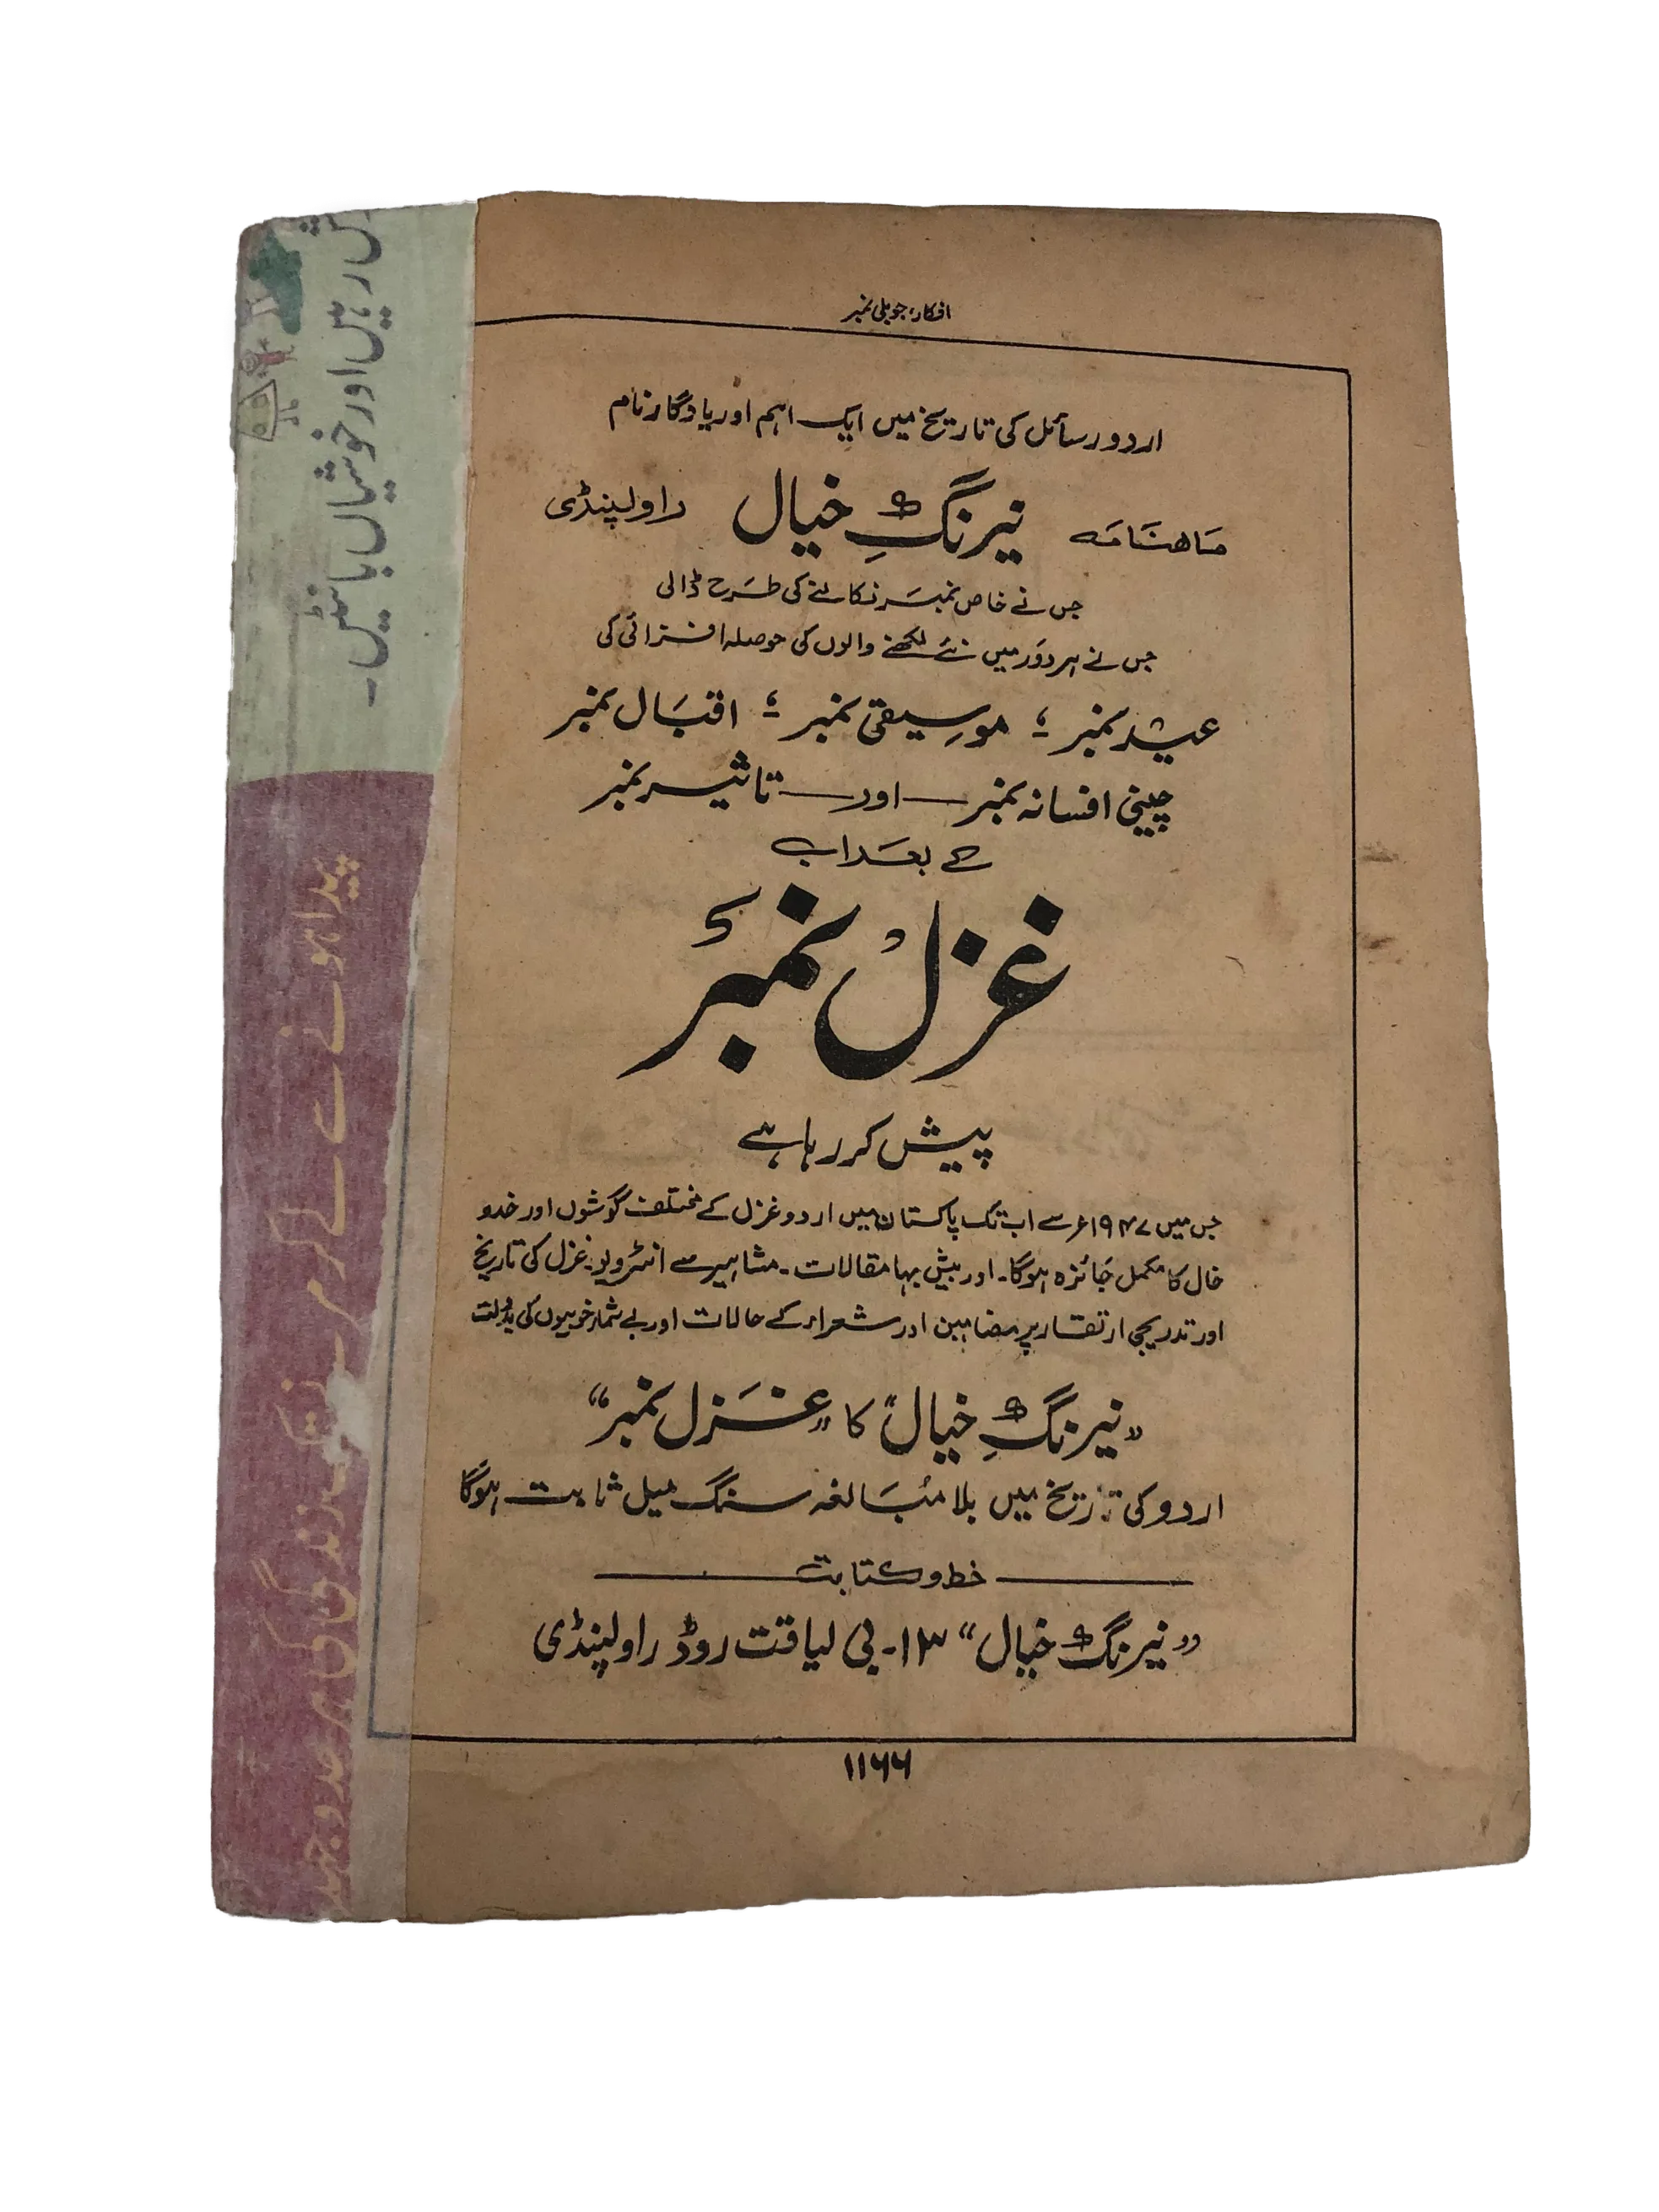 افکار، جوبلی نمبر
اردو رسائل کی تاریخ میں ایک اہم اور یادگار نام
ماہنامہ نیرنگِ خیال راولپنڈی
جس نے خاص نمبر نکالنے کی طرح ڈالی
جس نے ہر دور میں نئے لکھنے والوں کی حوصلہ افزائی کی
عید نمبر ؛ موسیقی نمبر ؛ اقبال نمبر
چینی افسانہ نمبر — اور — تاثیر نمبر
کے بعد اب
غزل نمبر
پیش کر رہا ہے
جس میں ۱۹۴۷ء سے اب تک پاکستان میں اردو غزل کے مختلف گوشوں اور خدو
خال کا مکمل جائزہ ہوگا۔ اور بیش بہا مقالات۔ مشاہیر سے انٹرویو۔ غزل کی تاریخ
اور تدریجی ارتقاء پر مضامین اور شعراء کے حالات اور بے شمار خوبیوں کی بدولت
”نیرنگِ خیال“ کا ”غزل نمبر“
اردو کی تاریخ میں بلا مبالغہ سنگ میل ثابت ہوگا
خط و کتابت
”نیرنگ خیال“ ۱۳۔ بی لیاقت روڈ راولپنڈی
۱۱۶۶
رہیں اور خوشیاں بانٹیں۔
پیدا ہونے سے لے کر مرنے تک زندگی کی ہر جدوجہد